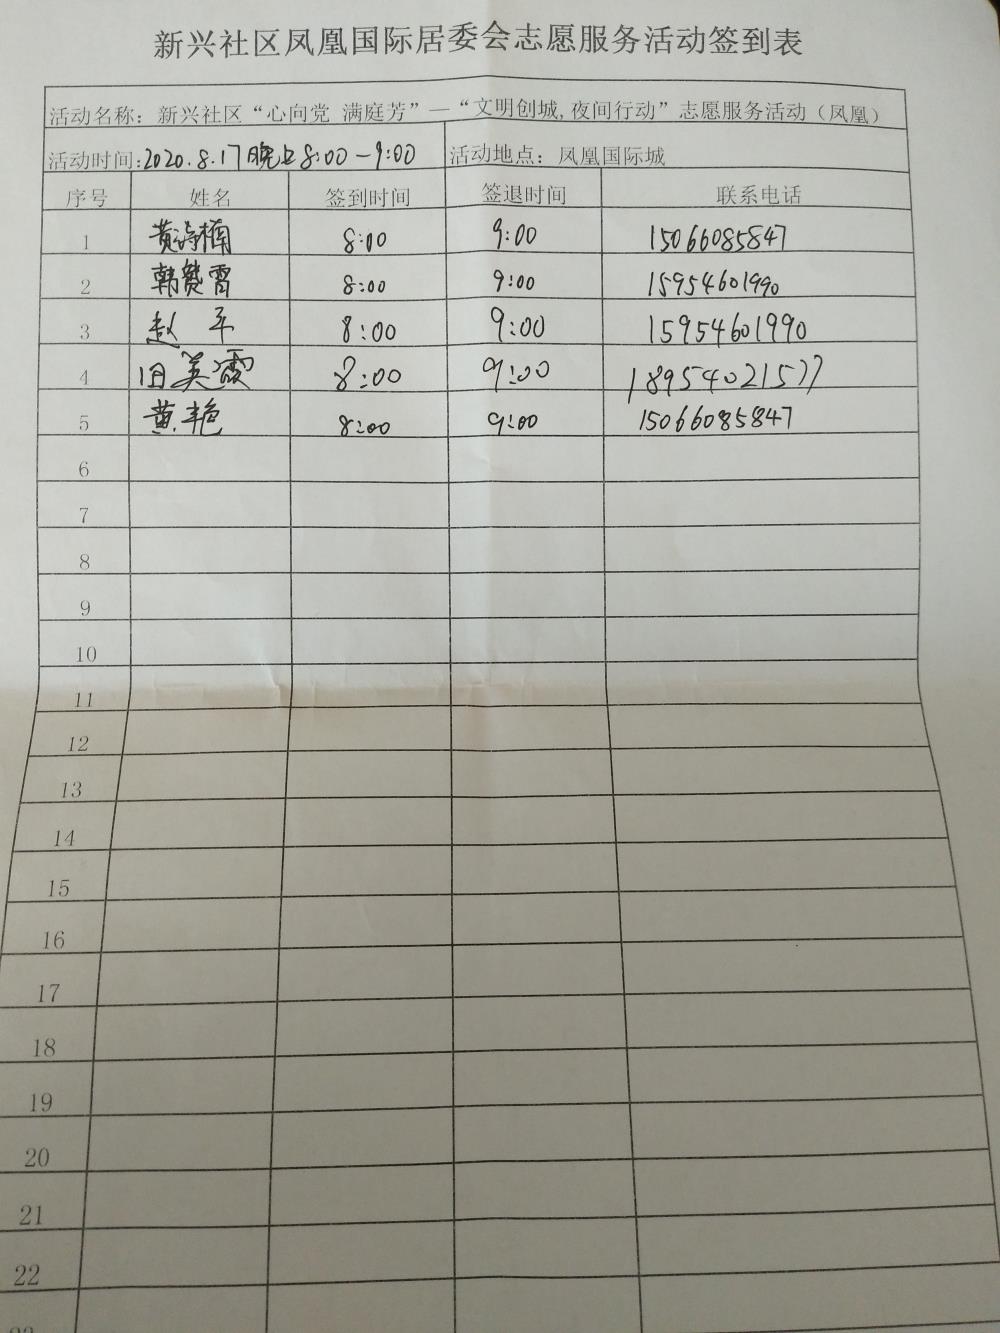 新兴社区凤凰国际居委会志愿服务活动签到表
活动名称：新兴社区“心向党 满庭芳”—“文明创城,夜间行动”志愿服务活动（凤凰）
活动时间:2020.8.17晚上8:00-9:00 活动地点：凤凰国际城
序号 姓名 签到时间 签退时间 联系电话
1 黄诗楠 8:00 9:00 15066085847
2 韩赞霄 8:00 9:00 15954601990
3 赵平 8:00 9:00 15954601990
4 田美霞 8:00 9:00 18954021577
5 黄艳 8:00 9:00 15066085847
6
7
8
9
10
11
12
13
14
15
16
17
18
19
20
21
22